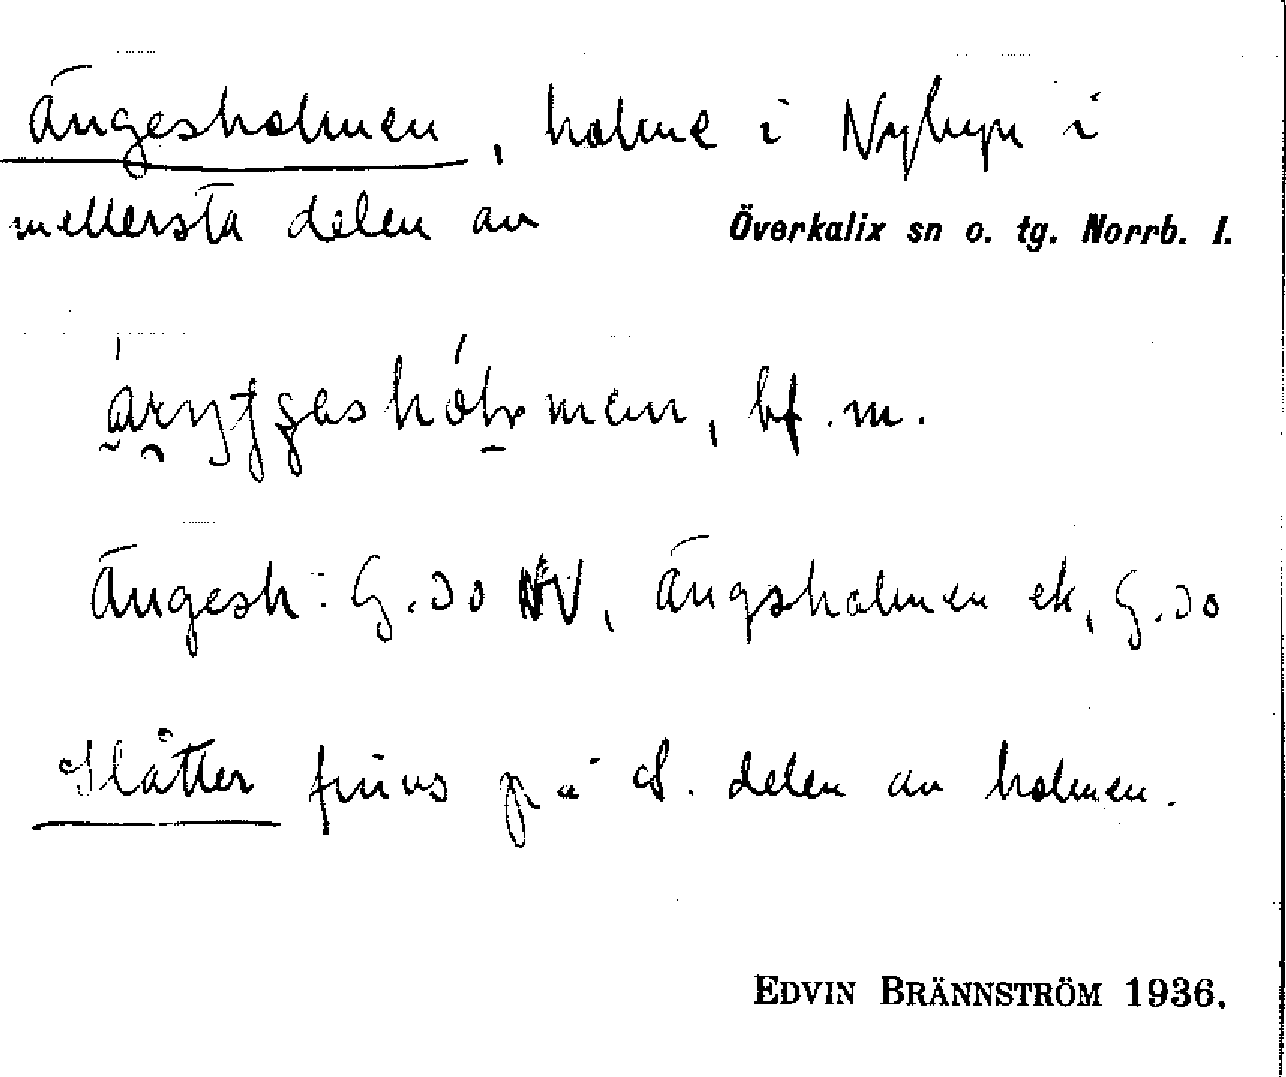 Ängesholmen, holme i Nybyn i
mellersta delen av
Överkalix sn o. tg. Norrb. l.
bf. m.
Ängesh: G. 30 NV, Ängsholmen ek, G. 30
Slåtter finns på S. delen av holmen.
EDVIN BRÄNNSTRÖM 1936.